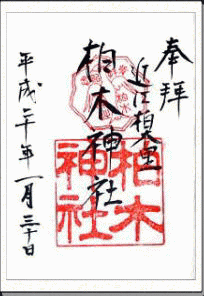 奉拝
近江柏
柏木神社
平成二十年一月三十日
柏木
神社